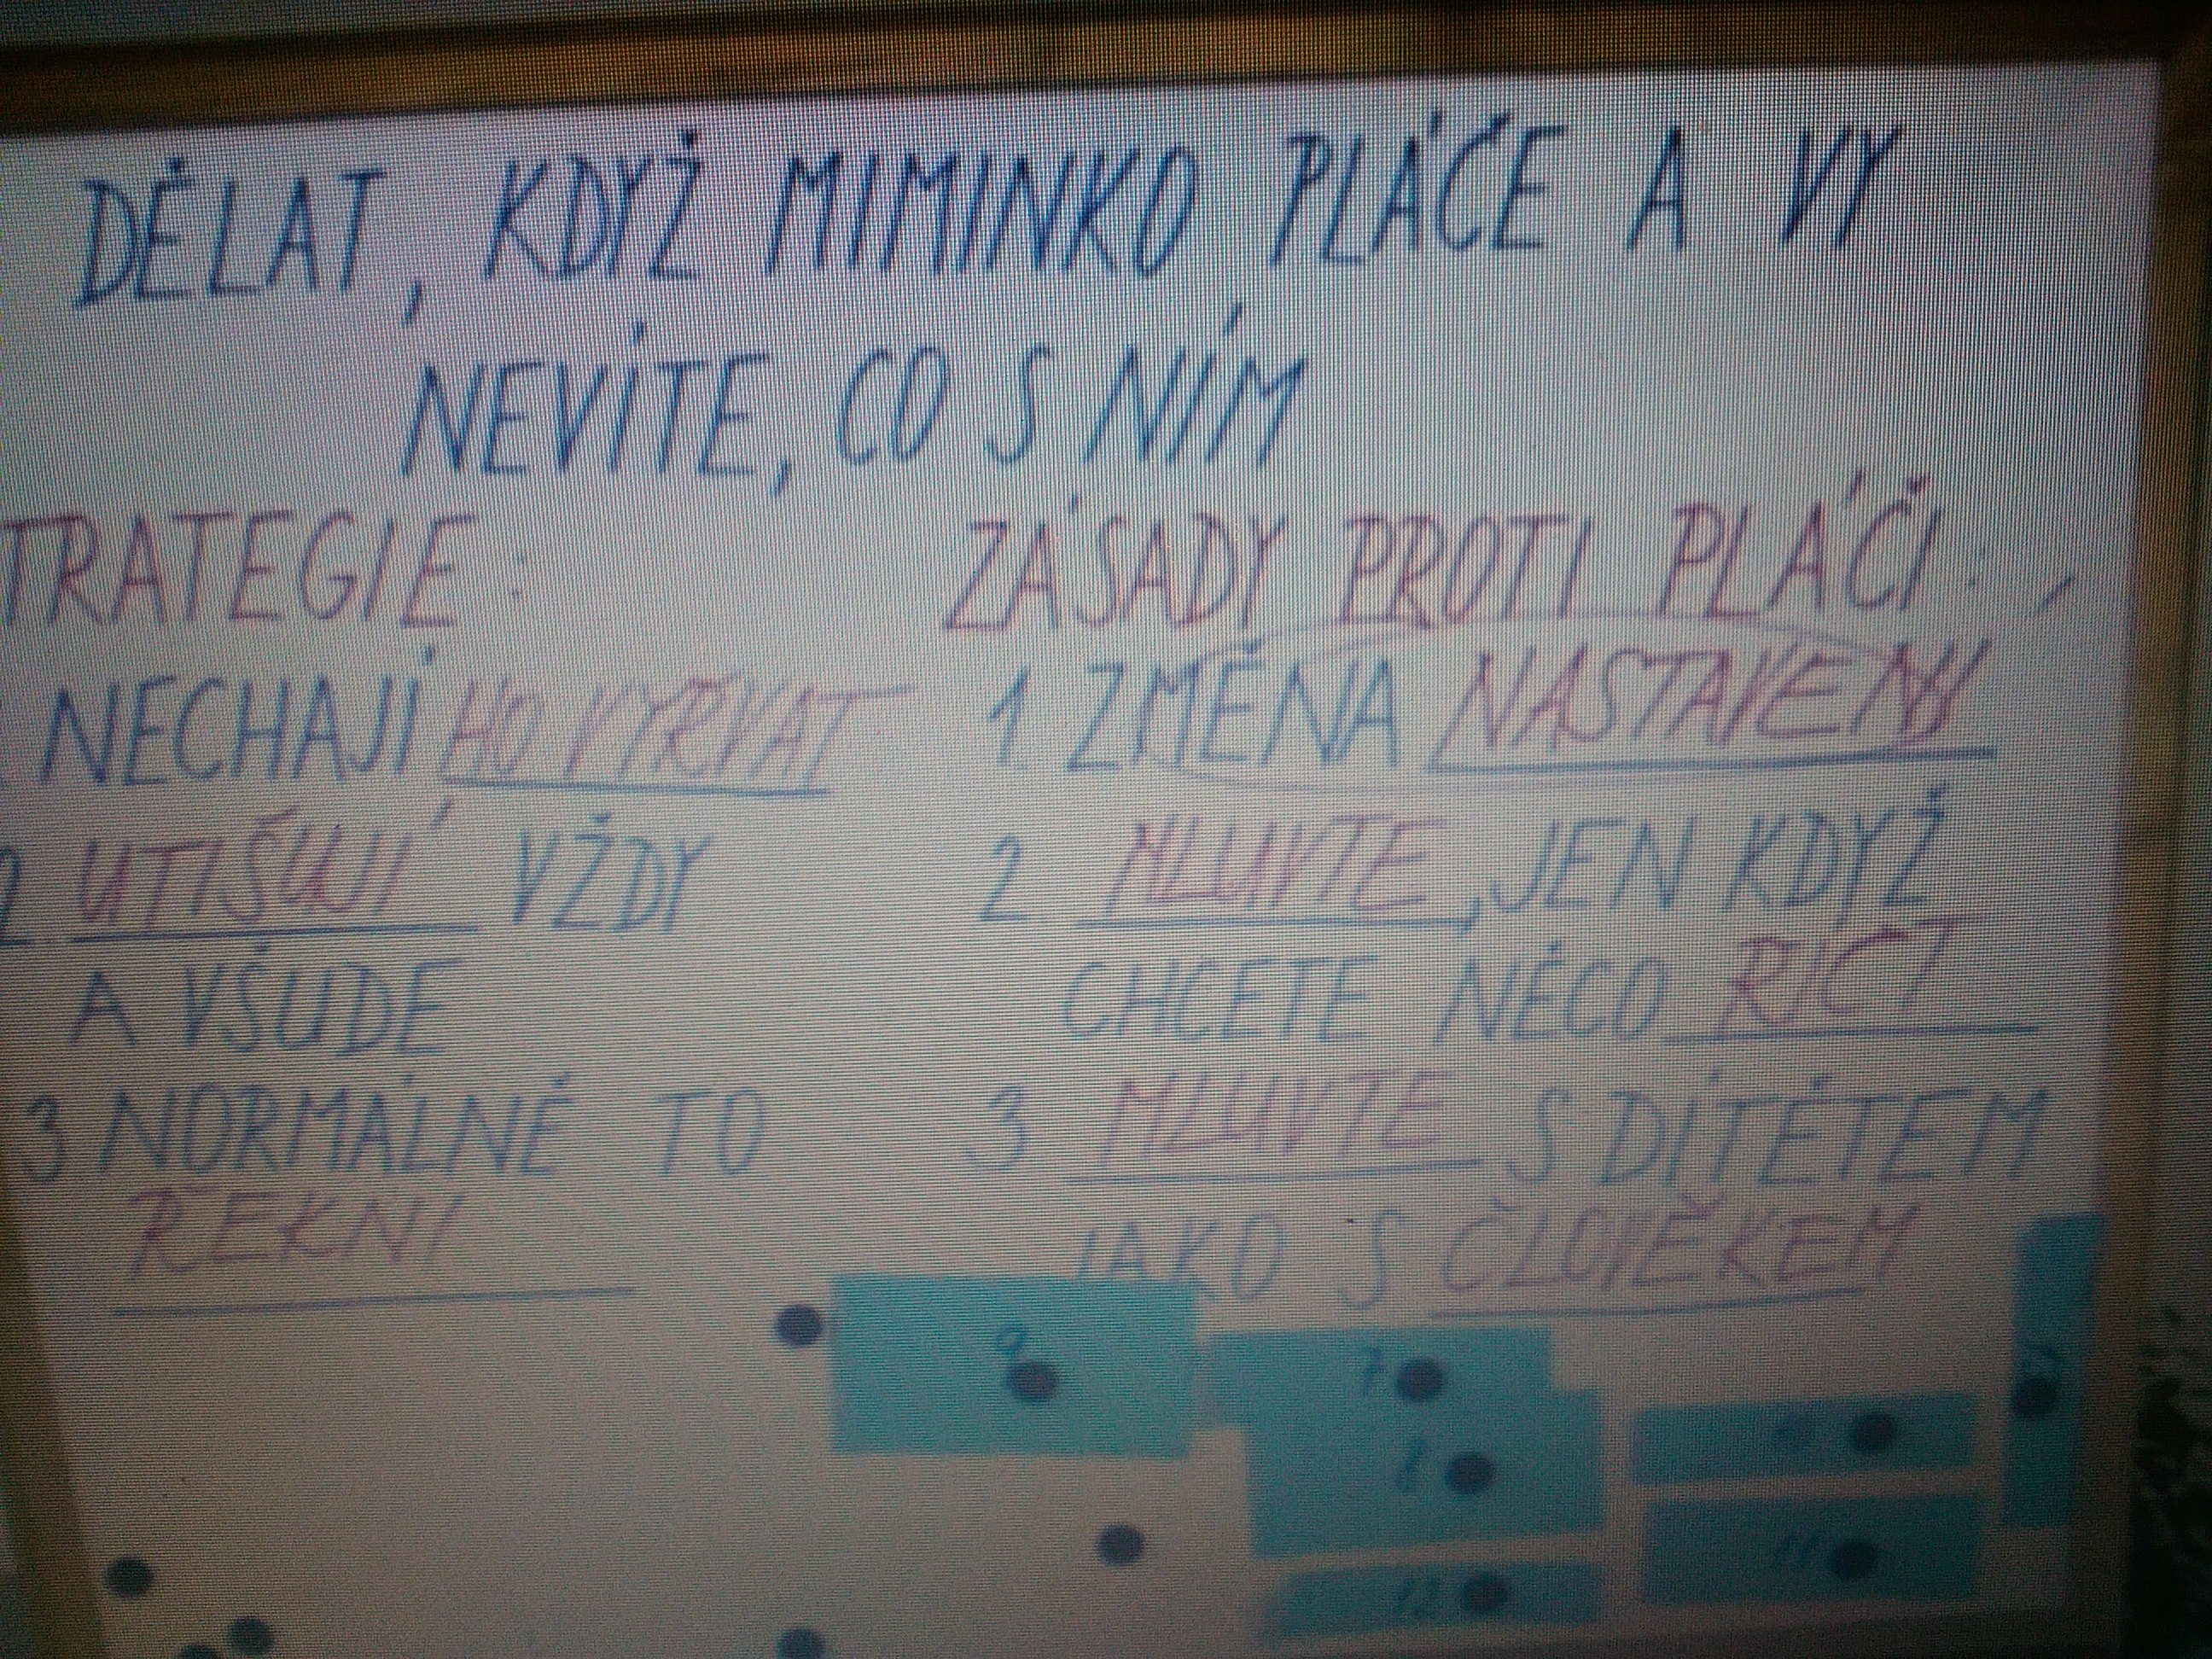 DĚLAT, KDYŽ MIMINKO PLÁČE A VY
NEVÍTE, CO S NÍM
TRATEGIE:
NECHAJÍ HO VYŘVAT
2 UTIŠUJÍ VŽDY
A VŠUDE
3 NORMÁLNĚ TO
ŘEKNÍ
ZÁSADY PROTI PLÁČI:
1 ZMĚNA NASTAVENÍ
2 MLUVTE, JEN KDYŽ
CHCETE NĚCO ŘÍCT
3 MLUVTE S DÍTĚTEM
JAKO S ČLOVĚKEM
9
7
8
11
12